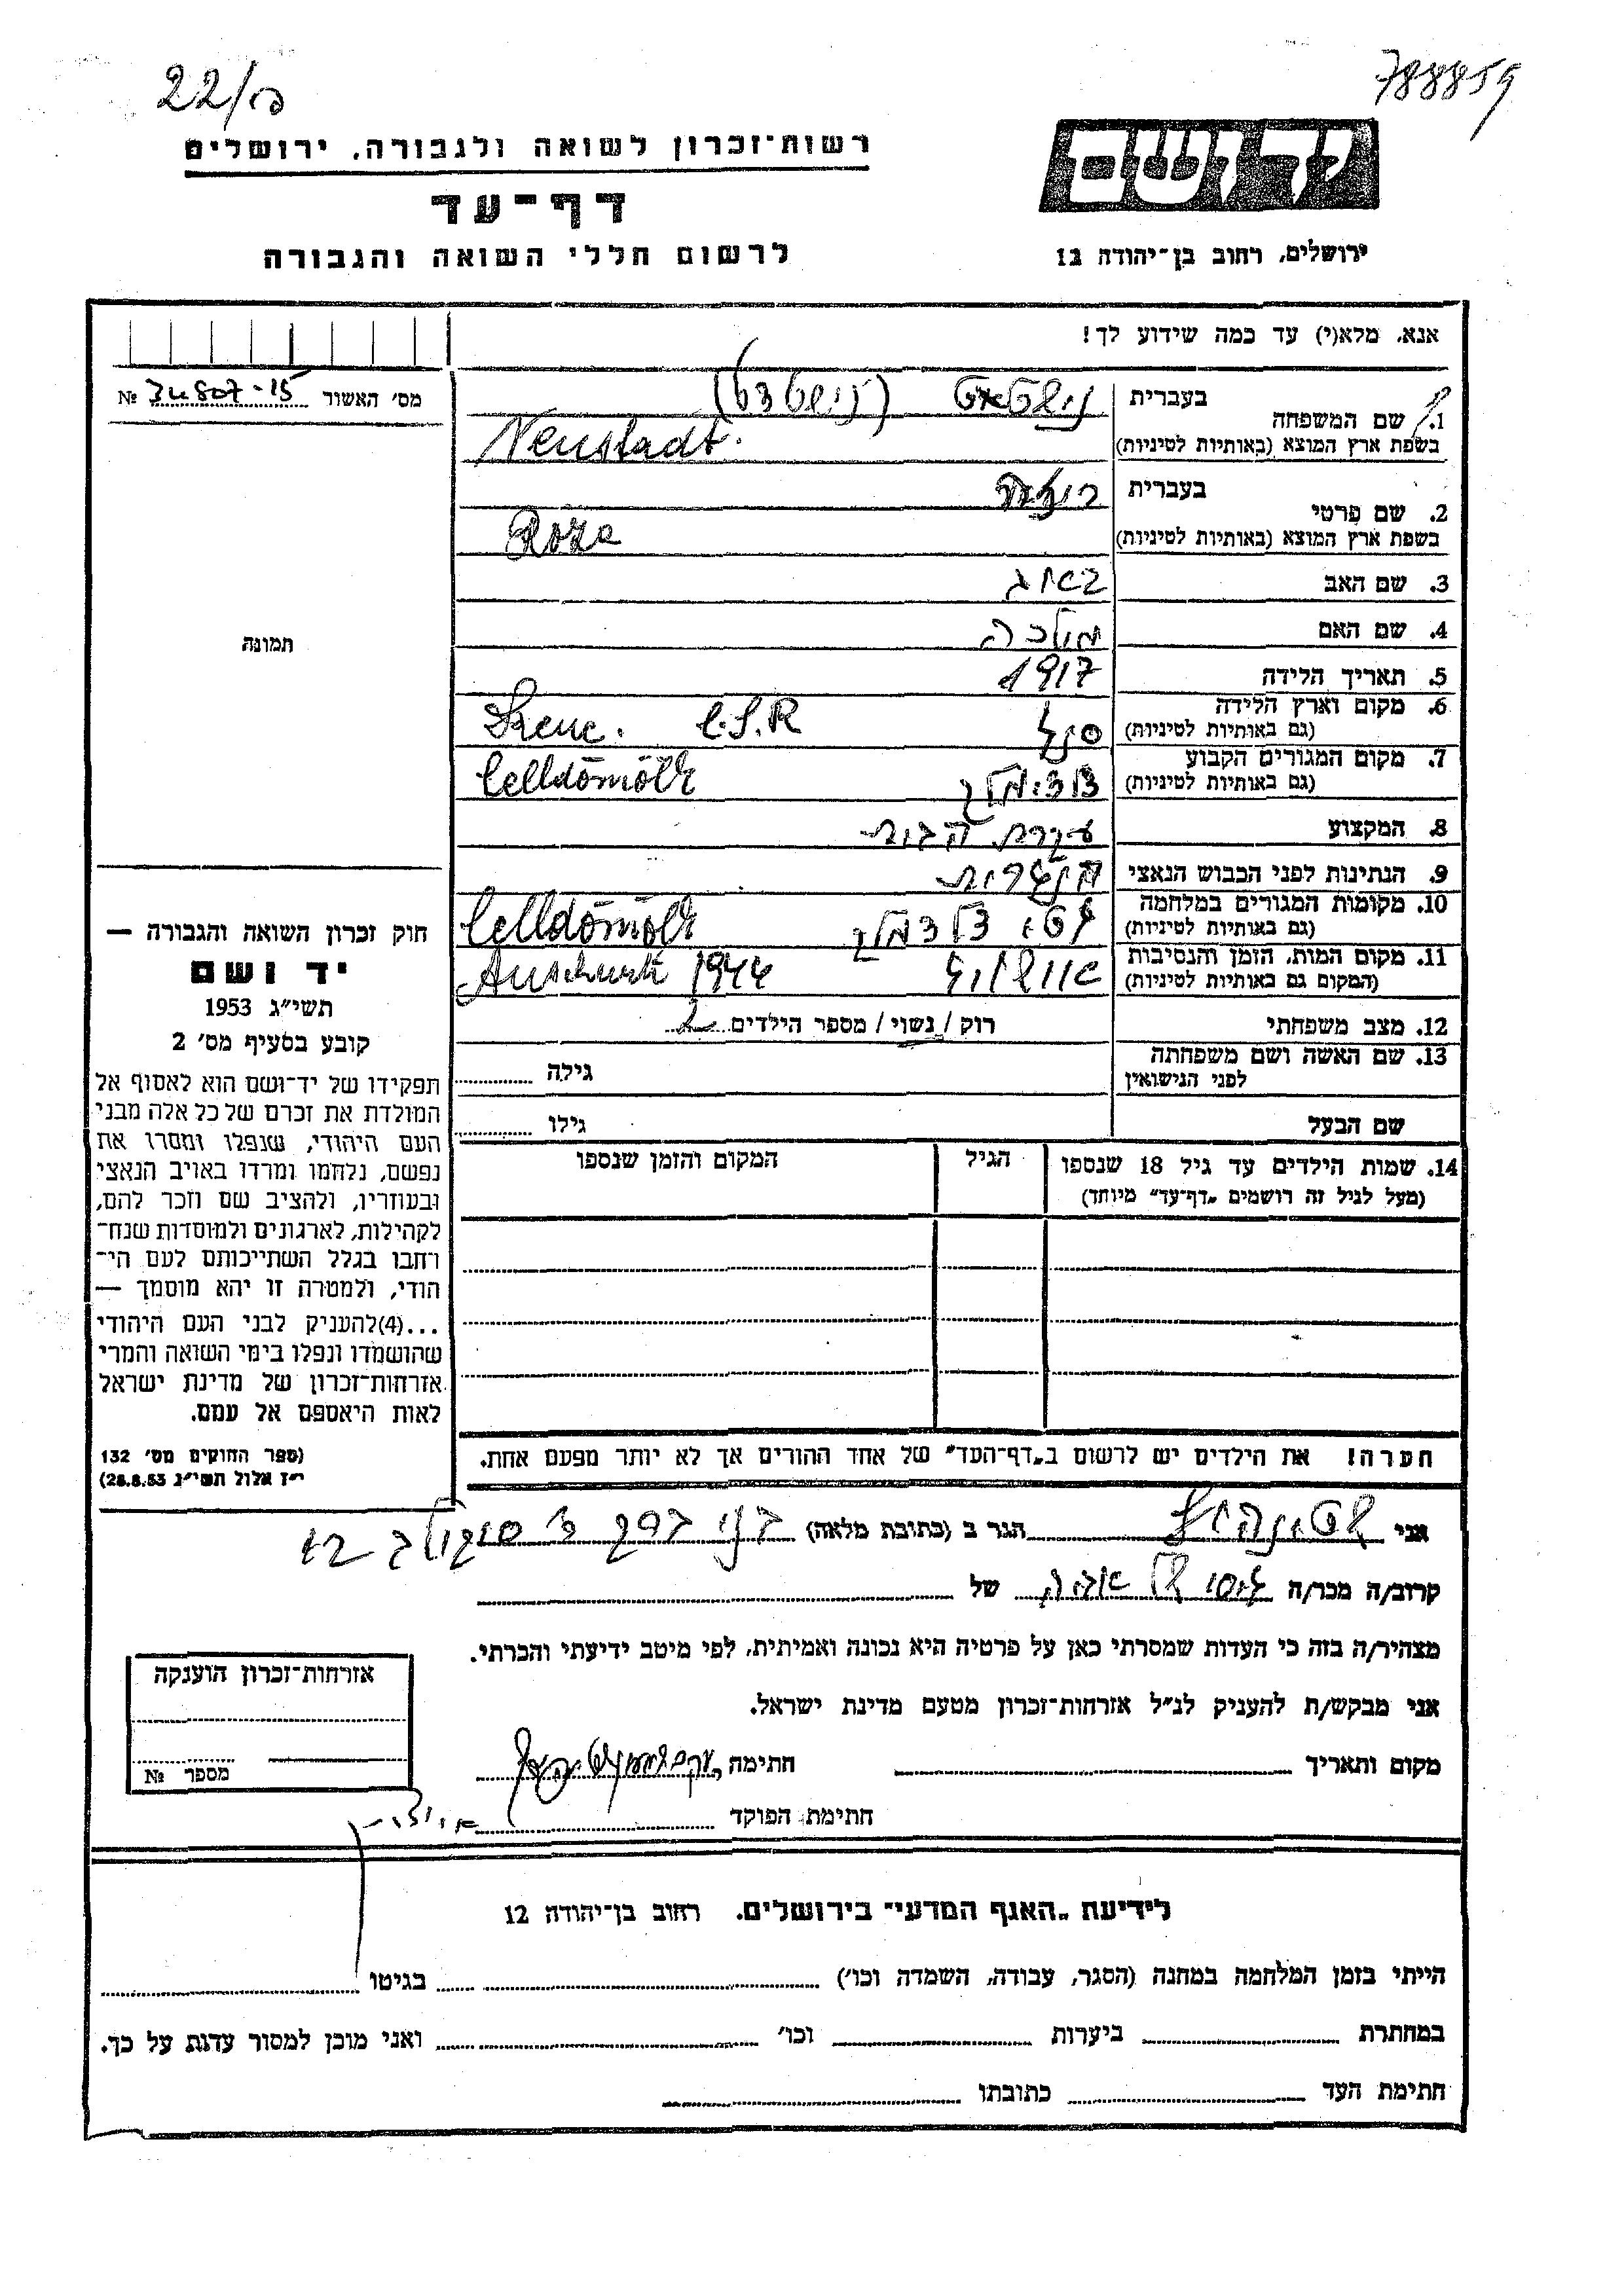 22/מ
788859
רשות־זכרון לשואה ולגבורה, ירושלים
דף־עד
לרשום חללי השואה והגבורה
יד ושם
ירושלים, רחוב בן־יהודה 12
אנא, מלא(י) עד כמה שידוע לך!
מס' האשור № 34807-15
1. שם המשפחה
בעברית
בשפת ארץ המוצא (באותיות לטיניות) Neustadt.
2. שם פרטי
בעברית
בשפת ארץ המוצא (באותיות לטיניות)
3. שם האב
4. שם האם מלכה
5. תאריך הלידה 1917
6. מקום וארץ הלידה
(גם באותיות לטיניות) C.S.R
7. מקום המגורים הקבוע
(גם באותיות לטיניות) Celldömölk
8. המקצוע עקרת הבית
9. הנתינות לפני הכבוש הנאצי הונגרית
10. מקומות המגורים במלחמה
(גם באותיות לטיניות) Celldömölk
11. מקום המות, הזמן והנסיבות
(המקום גם באותיות לטיניות) אושוויץ 1944
12. מצב משפחתי רוק / נשוי / מספר הילדים 2
13. שם האשה ושם משפחתה
לפני הנישואין גילה
שם הבעל גילו
14. שמות הילדים עד גיל 18 שנספו
(מעל לגיל זה רושמים „דף־עד" מיוחד)
הגיל
המקום והזמן שנספו
הערה! את הילדים יש לרשום ב„דף־העד" של אחד ההורים אך לא יותר מפעם אחת.
תמונה
חוק זכרון השואה והגבורה —
יד ושם
תשי"ג 1953
קובע בסעיף מס' 2
תפקידו של יד־ושם הוא לאסוף אל
המולדת את זכרם של כל אלה מבני
העם היהודי, שנפלו ומסרו את
נפשם, נלחמו ומרדו באויב הנאצי
ובעוזריו, ולהציב שם וזכר להם,
לקהילות, לארגונים ולמוסדות שנח־
רחבו בגלל השתייכותם לעם הי־
הודי, ולמטרה זו יהא מוסמך —
...(4) להעניק לבני העם היהודי
שהושמדו ונפלו בימי השואה והמרי
אזרחות־זכרון של מדינת ישראל
לאות היאספם אל עמם.
(ספר החוקים מס' 132
י"ז אלול תשי"ג 28.8.53)
אני הגר ב (כתובת מלאה) בני ברק
קרוב/ה מכר/ה של
מצהיר/ה בזה כי העדות שמסרתי כאן על פרטיה היא נכונה ואמיתית, לפי מיטב ידיעתי והכרתי.
אני מבקש/ת להעניק לנ"ל אזרחות־זכרון מטעם מדינת ישראל.
מקום ותאריך חתימה
חתימת הפוקד
אזרחות־זכרון הוענקה
מספר №
לידיעת „האגף המדעי" בירושלים. רחוב בן־יהודה 12
הייתי בזמן המלחמה במחנה (הסגר, עבודה, השמדה וכו') בגיטו
במחתרת ביערות וכו' ואני מוכן למסור עדות על כך.
חתימת העד כתובתו